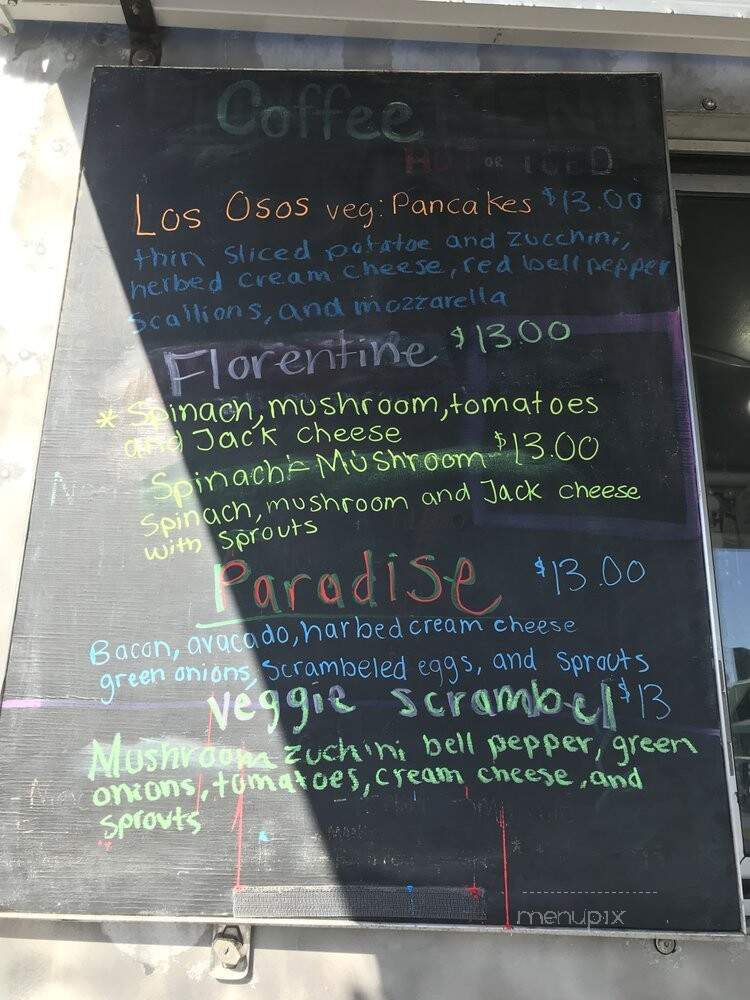 Coffee
HOT OR ICED
Los Osos veg: Pancakes $13.00
thin sliced potatoe and zucchini,
herbed cream cheese, red bell pepper
scallions, and mozzarella
Florentine $13.00
* Spinach, mushroom, tomatoes
and Jack cheese
Spinach = Mushroom $13.00
Spinach, mushroom and Jack cheese
with sprouts
Paradise $13.00
Bacon, avacado, harbed cream cheese
green onions, scrambeled eggs, and sprouts
veggie scrambel $13
Mushroom zuchini bell pepper, green
onions, tomatoes, cream cheese, and
sprouts
menupix